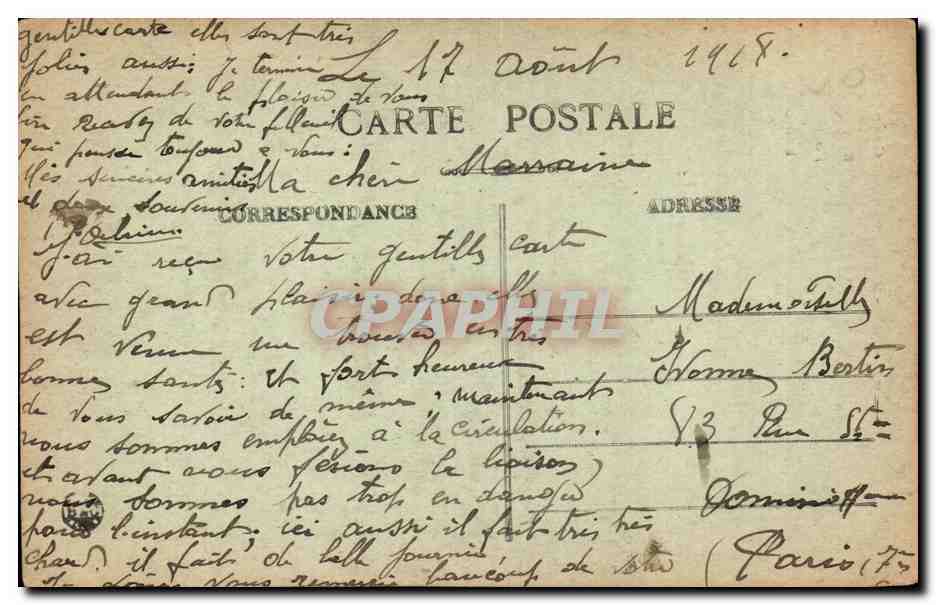 Le 17 Août 1918.
CARTE POSTALE
Ma chère Marraine
CORRESPONDANCE
ADRESSE
J'ai reçue votre gentille carte
avec grand plaisir donc elle
est venue me trouver en très
bonne santé: et fort heureux
de vous savoir de même, maintenant
nous sommes emploiez à la circulation.
et avant nous fésions la liaison
nous sommes pas trop en danger
pour l'instant, ici aussi il fait très très
chaud. il fait de belle journée
je dois vous remercier beaucoup de votre
gentille carte elle sont très
jolies aussi: Je termine
en attendant le plaisir de vous
lire Recevez de votre filleul
qui pense toujours a vous:
Mes sincères amitiés
et doux souvenir
Mademoiselle
Yvonne Bertin
83 Rue St=
Dominique
Paris (7e
CPAPHIL